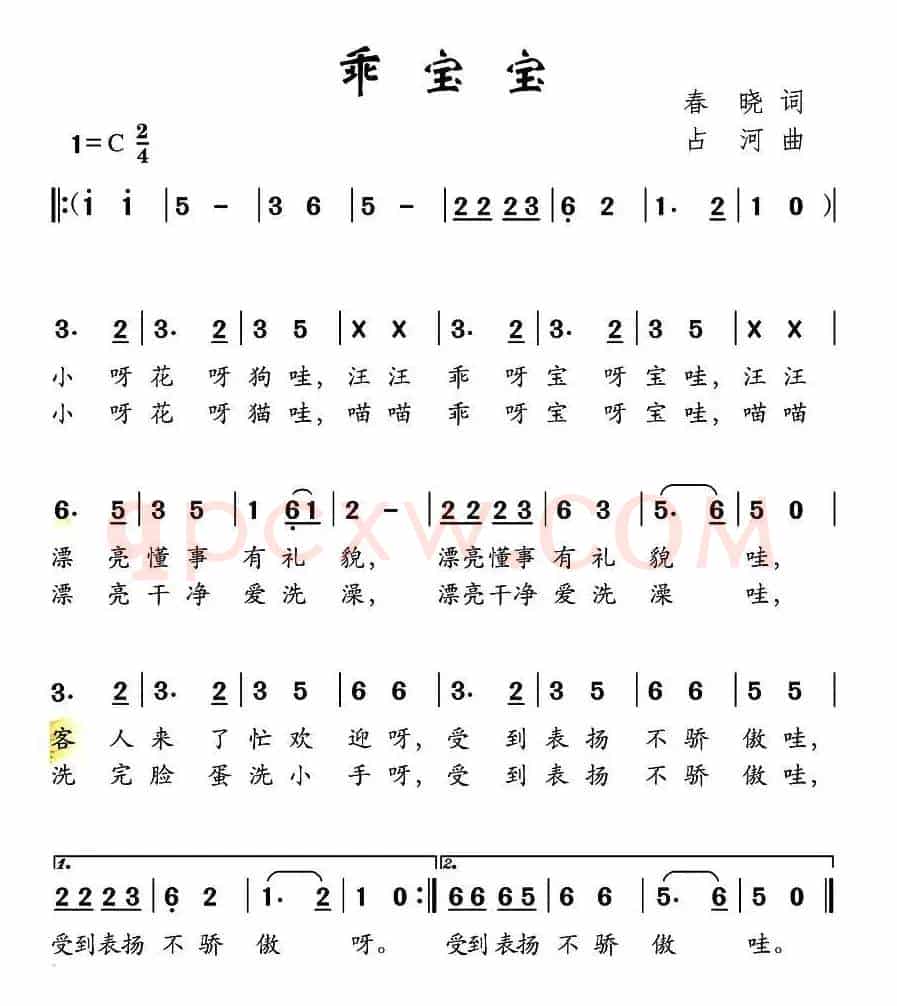 乖宝宝
春 晓 词
1=C 2/4
占 河 曲
‖:(i i | 5 - | 3 6 | 5 - | 2 2 2 3 | 6̣ 2 | 1. 2 | 1 0 )|
3. 2 | 3. 2 | 3 5 | X X | 3. 2 | 3. 2 | 3 5 | X X |
小 呀 花 呀 狗 哇, 汪 汪 乖 呀 宝 呀 宝 哇, 汪 汪
小 呀 花 呀 猫 哇, 喵 喵 乖 呀 宝 呀 宝 哇, 喵 喵
6. 5 | 3 5 | 1 6̣ 1 | 2 - | 2 2 2 3 | 6 3 | 5. 6 | 5 0 |
qpcxw.COM
漂 亮 懂 事 有 礼 貌, 漂亮懂事 有 礼 貌 哇,
漂 亮 干 净 爱 洗 澡, 漂亮干净 爱 洗 澡 哇,
3. 2 | 3. 2 | 3 5 | 6 6 | 3. 2 | 3 5 | 6 6 | 5 5 |
客 人 来 了 忙 欢 迎 呀, 受 到 表 扬 不 骄 傲 哇,
洗 完 脸 蛋 洗 小 手 呀, 受 到 表 扬 不 骄 傲 哇,
1. 2.
2 2 2 3 | 6̣ 2 | 1. 2 | 1 0 :‖ 6 6 6 5 | 6 6 | 5. 6 | 5 0 ‖
受到表扬 不 骄 傲 呀。 受到表扬 不 骄 傲 哇。